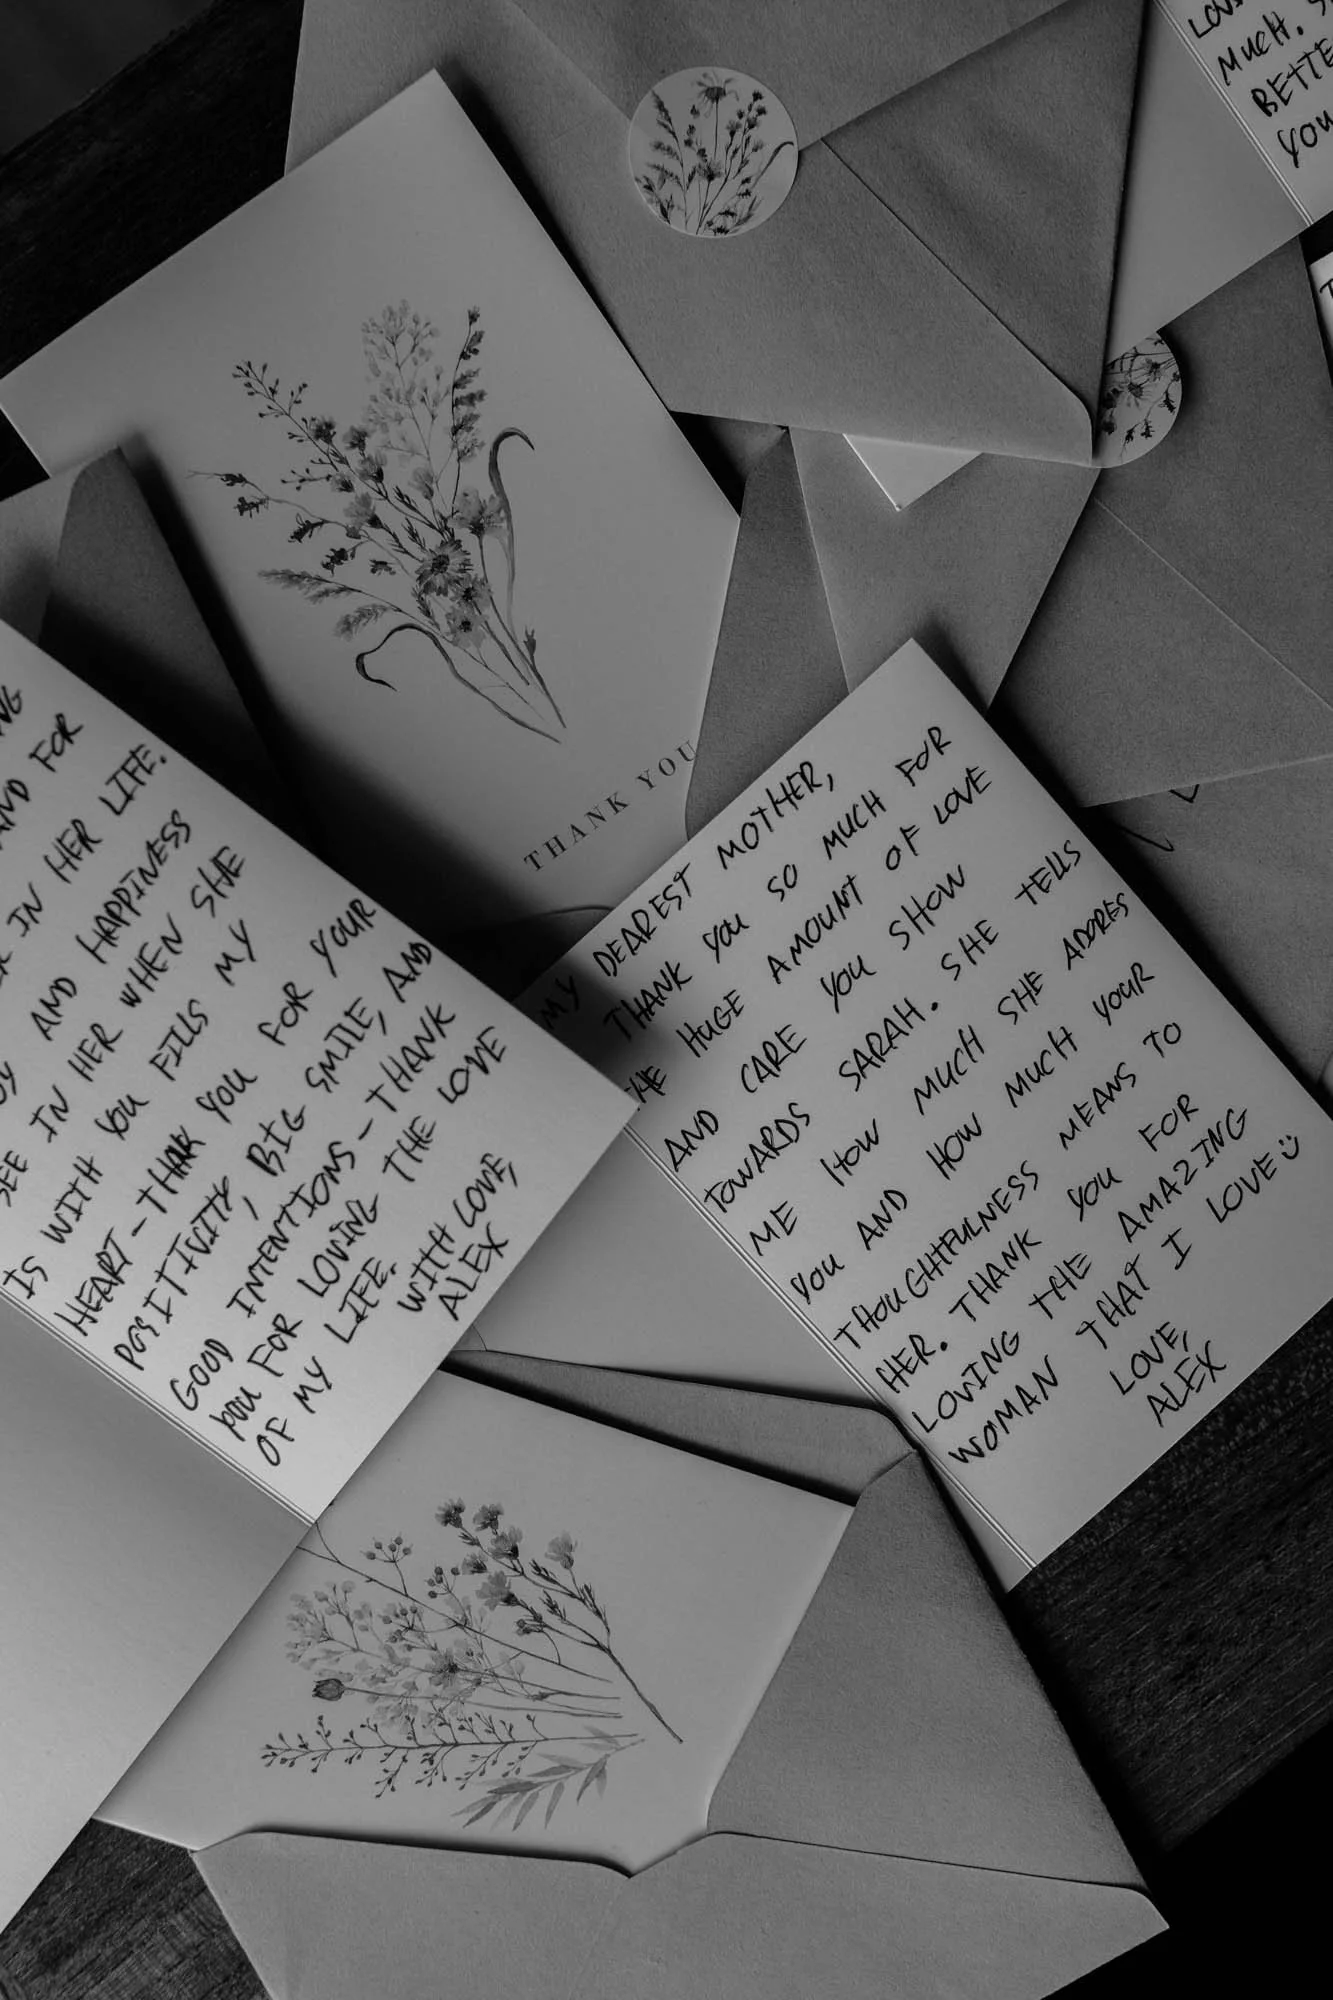 LOV
MUCH. S
BETTE
YOU
THANK YOU
NG
AND FOR
IN HER LIFE.
AND HAPPINESS
SEE IN HER WHEN SHE
IS WITH YOU FILLS MY
HEART - THANK YOU FOR YOUR
POSITIVITY, BIG SMILE, AND
GOOD INTENTIONS - THANK
YOU FOR LOVING THE LOVE
OF MY LIFE.
WITH LOVE,
ALEX
MY DEAREST MOTHER,
THANK YOU SO MUCH FOR
THE HUGE AMOUNT OF LOVE
AND CARE YOU SHOW
TOWARDS SARAH. SHE TELLS
ME HOW MUCH SHE ADORES
YOU AND HOW MUCH YOUR
THOUGHTFULNESS MEANS TO
HER. THANK YOU FOR
LOVING THE AMAZING
WOMAN THAT I LOVE :)
LOVE,
ALEX